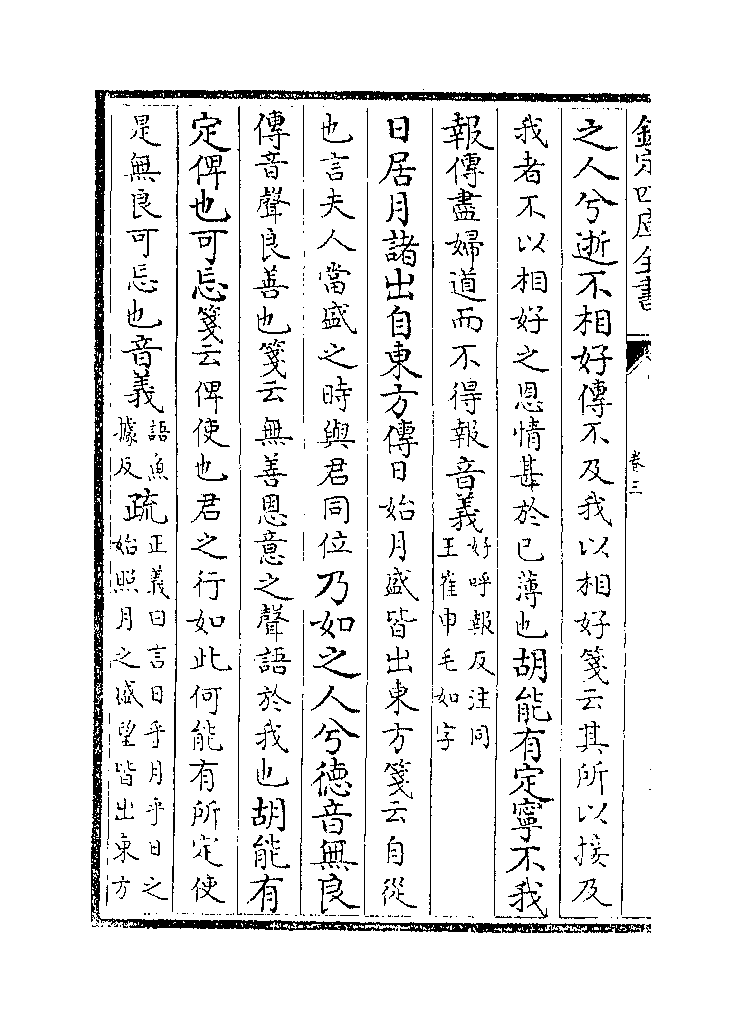 欽定四庫全書
卷三
之人兮逝不相好傳不及我以相好箋云其所以接及
我者不以相好之恩情甚於己薄也胡能有定寧不我
報傳盡婦道而不得報音義好呼報反注同王崔申毛如字
日居月諸出自東方傳日始月盛皆出東方箋云自從
也言夫人當盛之時與君同位乃如之人兮德音無良
傳音聲良善也箋云無善恩意之聲語於我也胡能有
定俾也可忘箋云俾使也君之行如此何能有所定使
是無良可忘也音義語魚據反疏正義曰言日乎月乎日之始照月之盛望皆出東方